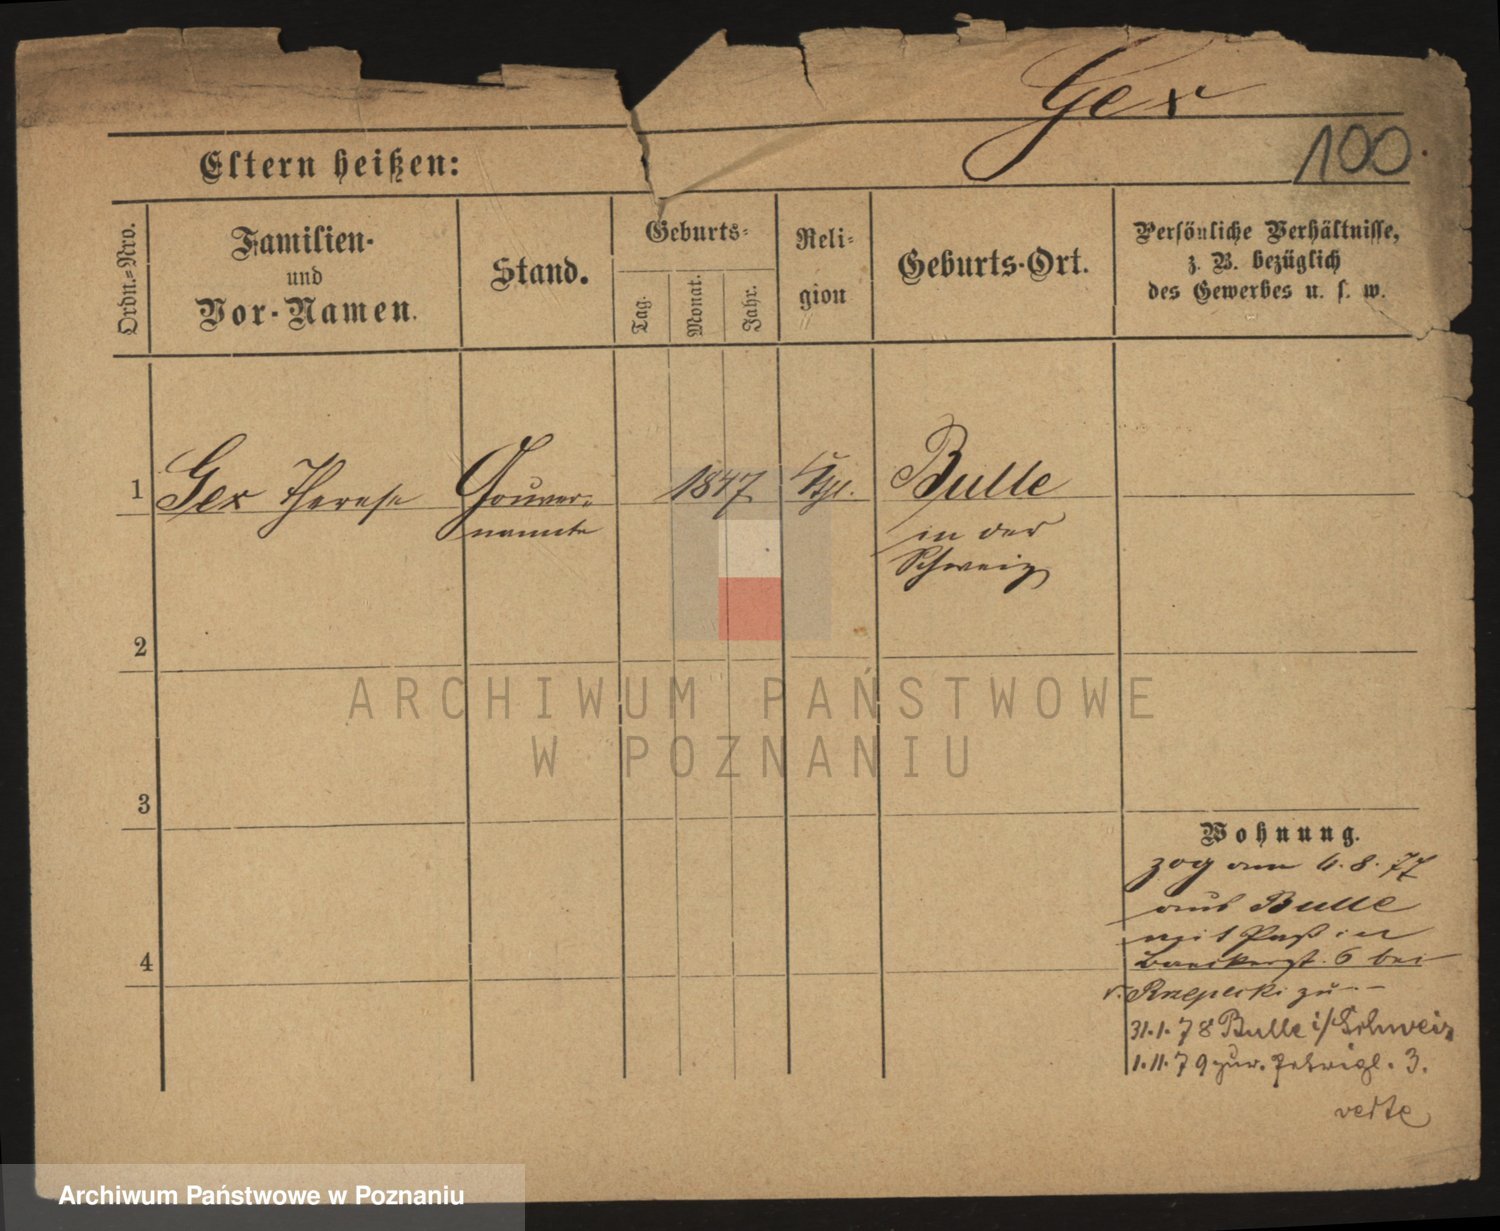 Gex
100.
Eltern heißen:
Ordn.=Nro.
Familien-
und
Vor-Namen.
Stand.
Geburts=
Tag.
Monat.
Jahr.
Reli=
gion
Geburts-Ort.
Persönliche Verhältnisse,
z. B. bezüglich
des Gewerbes u. s. w.
1 Gex Therese Gouver=
nannte
1847
Bulle
in der
Schweiz
2
3
4
Wohnung.
zog am 4.8.77
aus Bulle
mit Paß in
Baeckerst. 6 bei
v. Rzepecki zu
31.1.78 Bulle i/Schweiz
1.11.79 zur. 3.
verte
ARCHIWUM PAŃSTWOWE
W POZNANIU
Archiwum Państwowe w Poznaniu